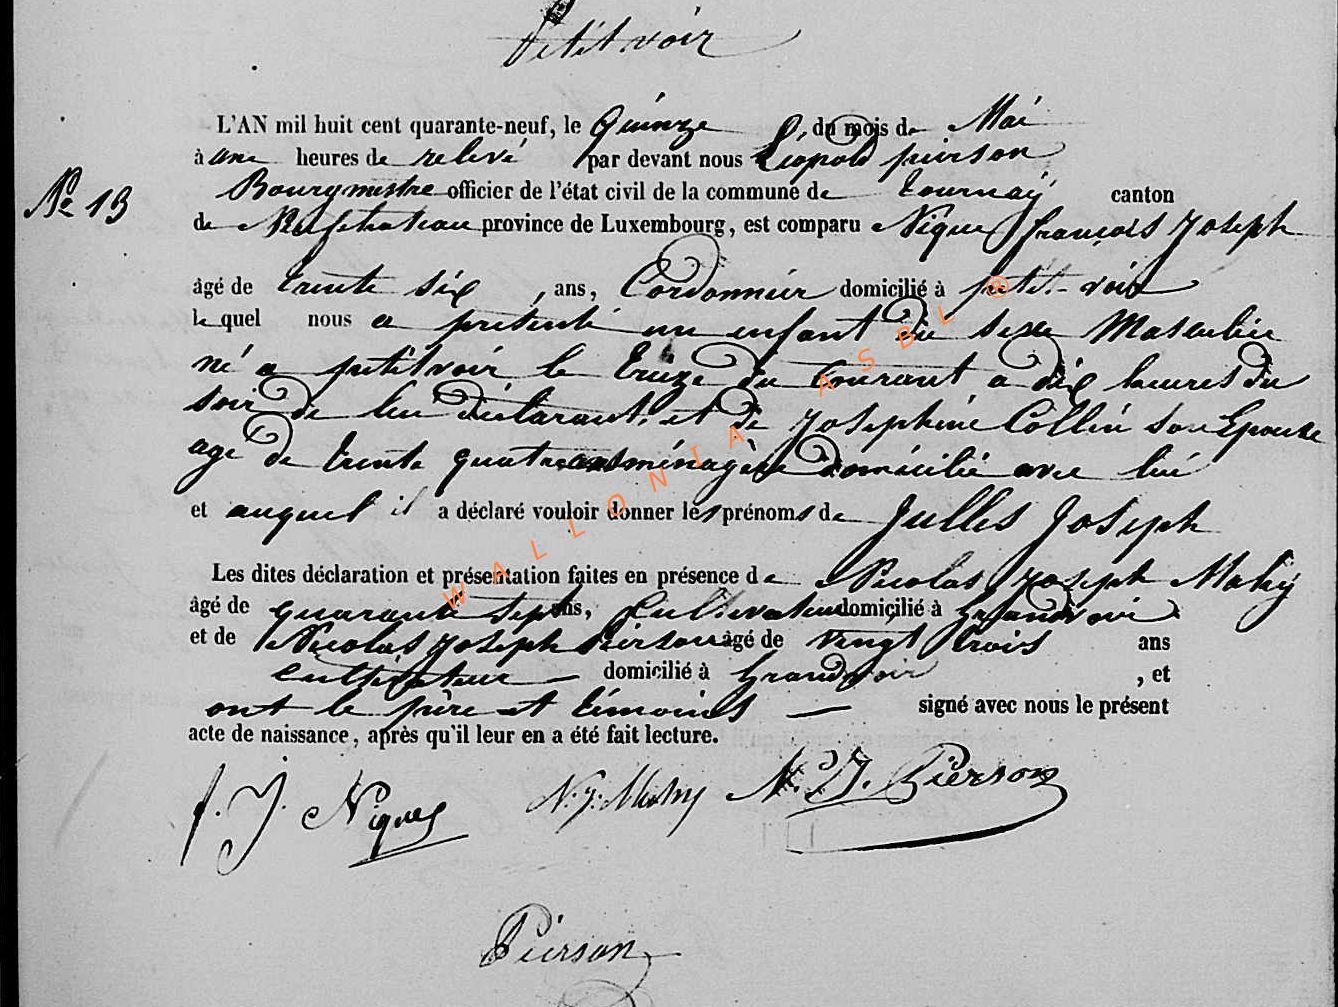 Petitvoir
L'AN mil huit cent quarante-neuf, le Quinze du mois de Mai
à une heures de relevé par devant nous Léopold pierson
Bourgmestre officier de l'état civil de la commune de tournaÿ canton
Nº 13
de Neufchateau province de Luxembourg, est comparu Nique françois Joseph
âgé de trente six, ans, Cordonnier domicilié à petit-voir
lequel nous a présenté un enfant du sexe Masculin
né a petitvoir le treize du Courant a dix heures du
soir de lui déclarant et de Josephine Collin son Epouse
age de trente quatre ans ménagère domicilié avec lui
et auquel il a déclaré vouloir donner les prénoms de Julles Joseph
Les dites déclaration et présentation faites en présence de Nicolas Joseph Mahy
âgé de quarante sept ans, Cultivateur domicilié à Grandvoir
et de Nicolas Joseph Pierson âgé de vingt trois ans
cultivateur domicilié à Grandvoir, et
ont le père et témoins signé avec nous le présent
acte de naissance, après qu'il leur en a été fait lecture.
f. J. Nique N. J. Mahy N. J. Pierson
Pierson
WALLONIA ASBL ®